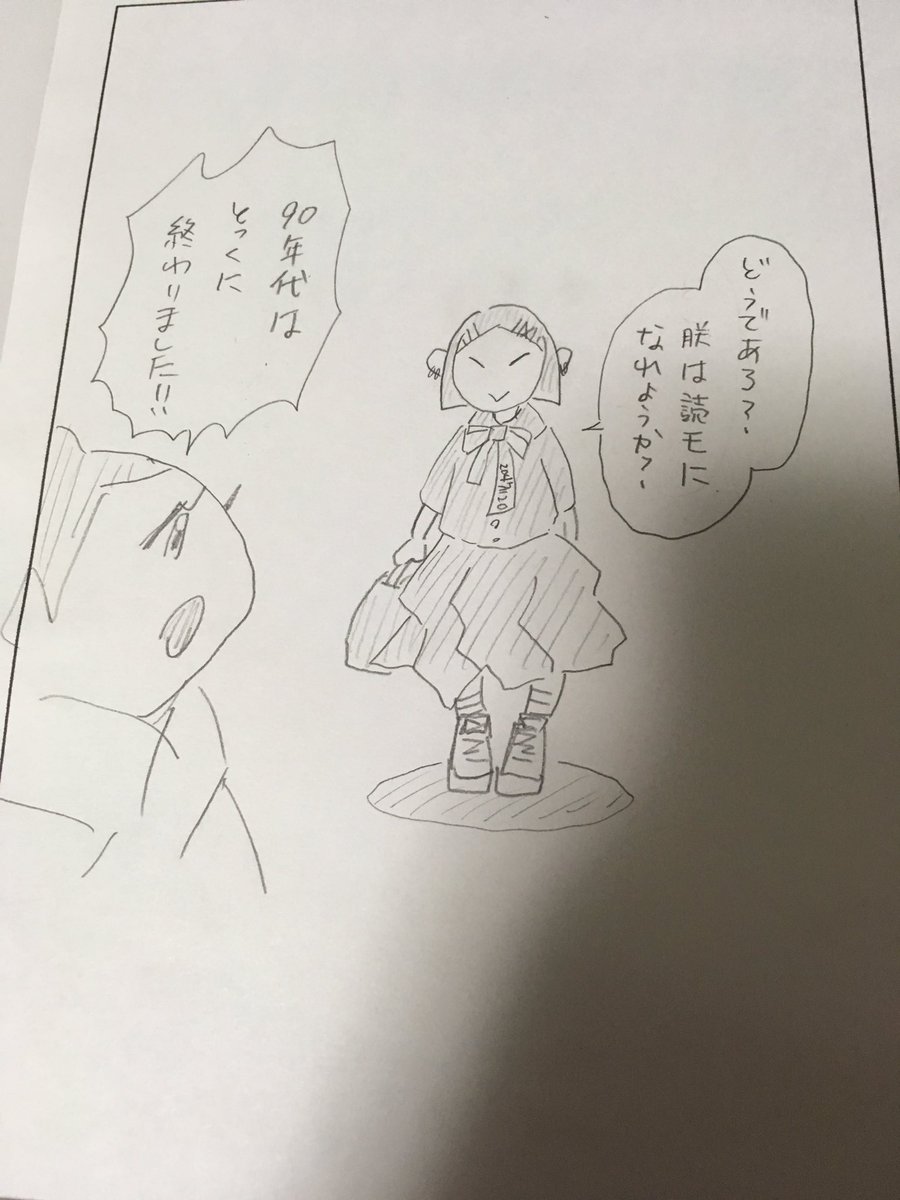 どうであろ?
朕は読モに
なれようか?
90年代は
とっくに
終わりました!!